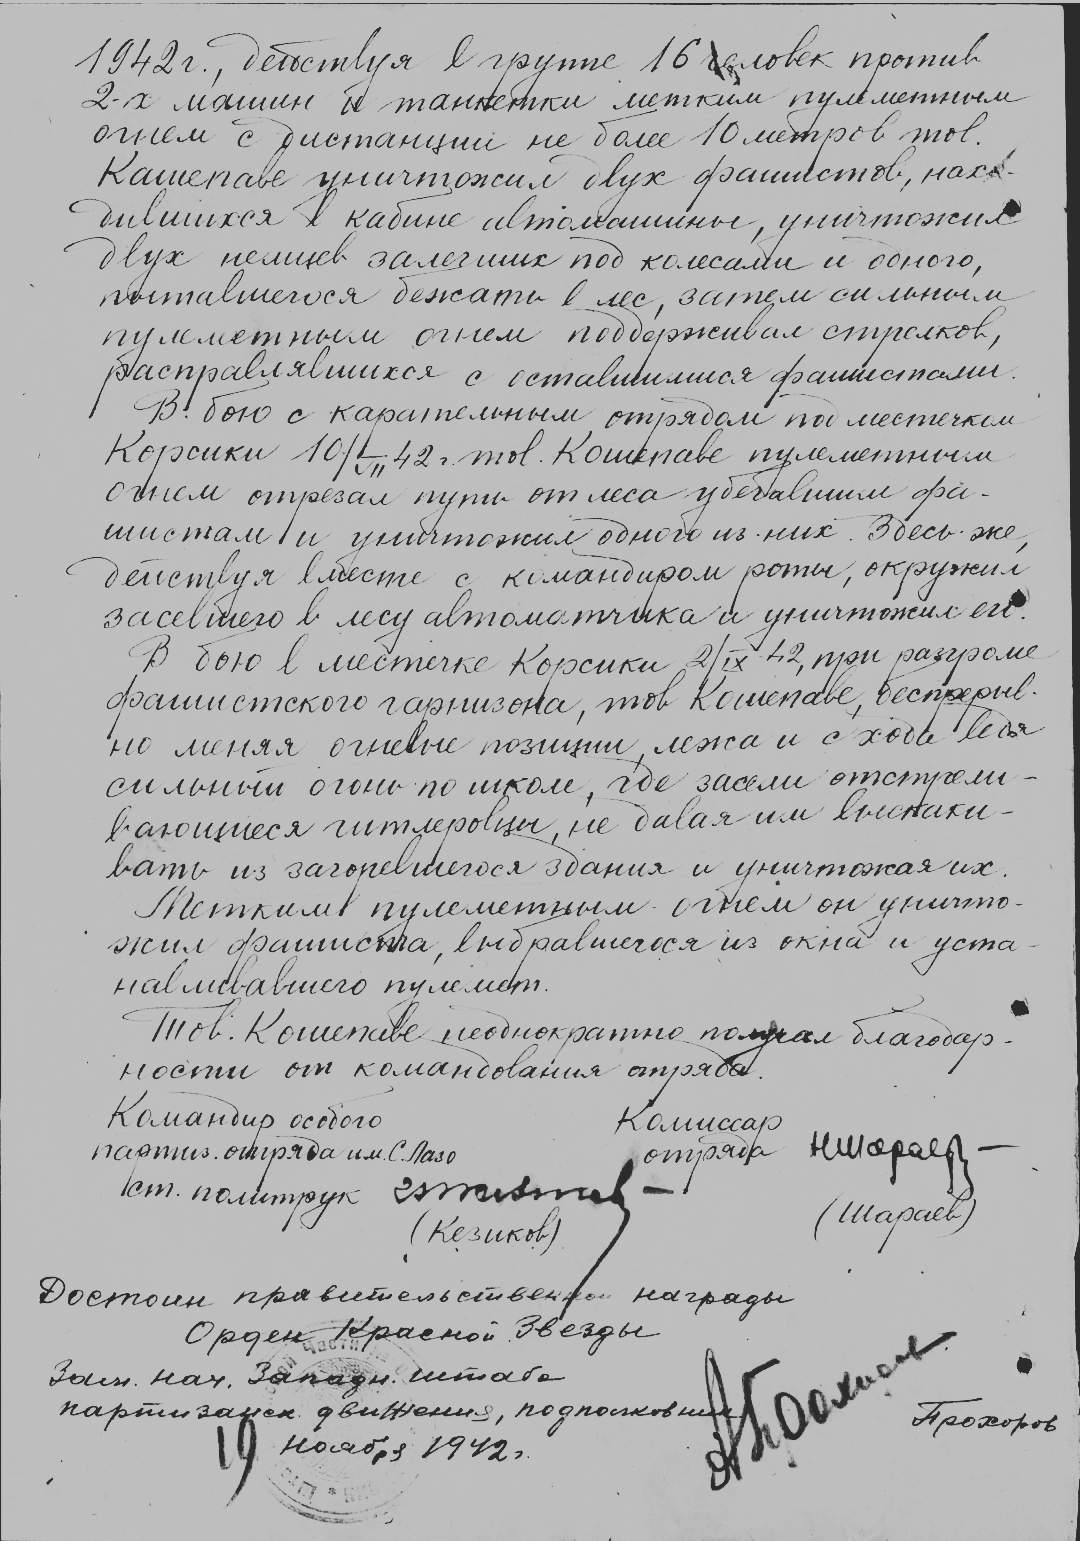 1942 г., действуя в группе 16 человек против
2-х машин и танкетки метким пулеметным
огнем с дистанции не более 10 метров тов.
Кашепаве уничтожил двух фашистов, нахо-
дившихся в кабине автомашины, уничтожил
двух немцев залегших под колесами и одного,
пытавшегося бежать в лес, затем сильным
пулеметным огнем поддерживал стрелков,
расправлявшихся с оставшимися фашистами.
В бою с карательным отрядом под местечком
Корсики 10/VII 42 г. тов. Кошепаве пулеметным
огнем отрезал путь от леса убегавшим фа-
шистам и уничтожил одного из них. Здесь же,
действуя вместе с командиром роты, окружил
засевшего в лесу автоматчика и уничтожил его.
В бою в местечке Корсики 2/IX 42, при разгроме
фашистского гарнизона, тов Кошепаве, беспрерыв-
но меняя огневые позиции, лежа и с хода ведя
сильный огонь по школе, где засели отстрели-
вающиеся гитлеровцы, не давая им выскаки-
вать из загоревшегося здания и уничтожая их.
Метким пулеметным огнем он уничто-
жил фашиста, выбравшегося из окна и уста-
навливавшего пулемет.
Тов. Кошепаве неоднократно получал благодар-
ности от командования отряда.
Командир особого
партиз. отряда им. С. Лазо
ст. политрук
(Кезиков)
Комиссар
отряда НШараев
(Шараев)
Достоин правительственной награды
Орден Красной Звезды
Зам. нач. Западн. штаба
партизанск. движения, подполковник
Прохоров
19 ноября 1942 г.